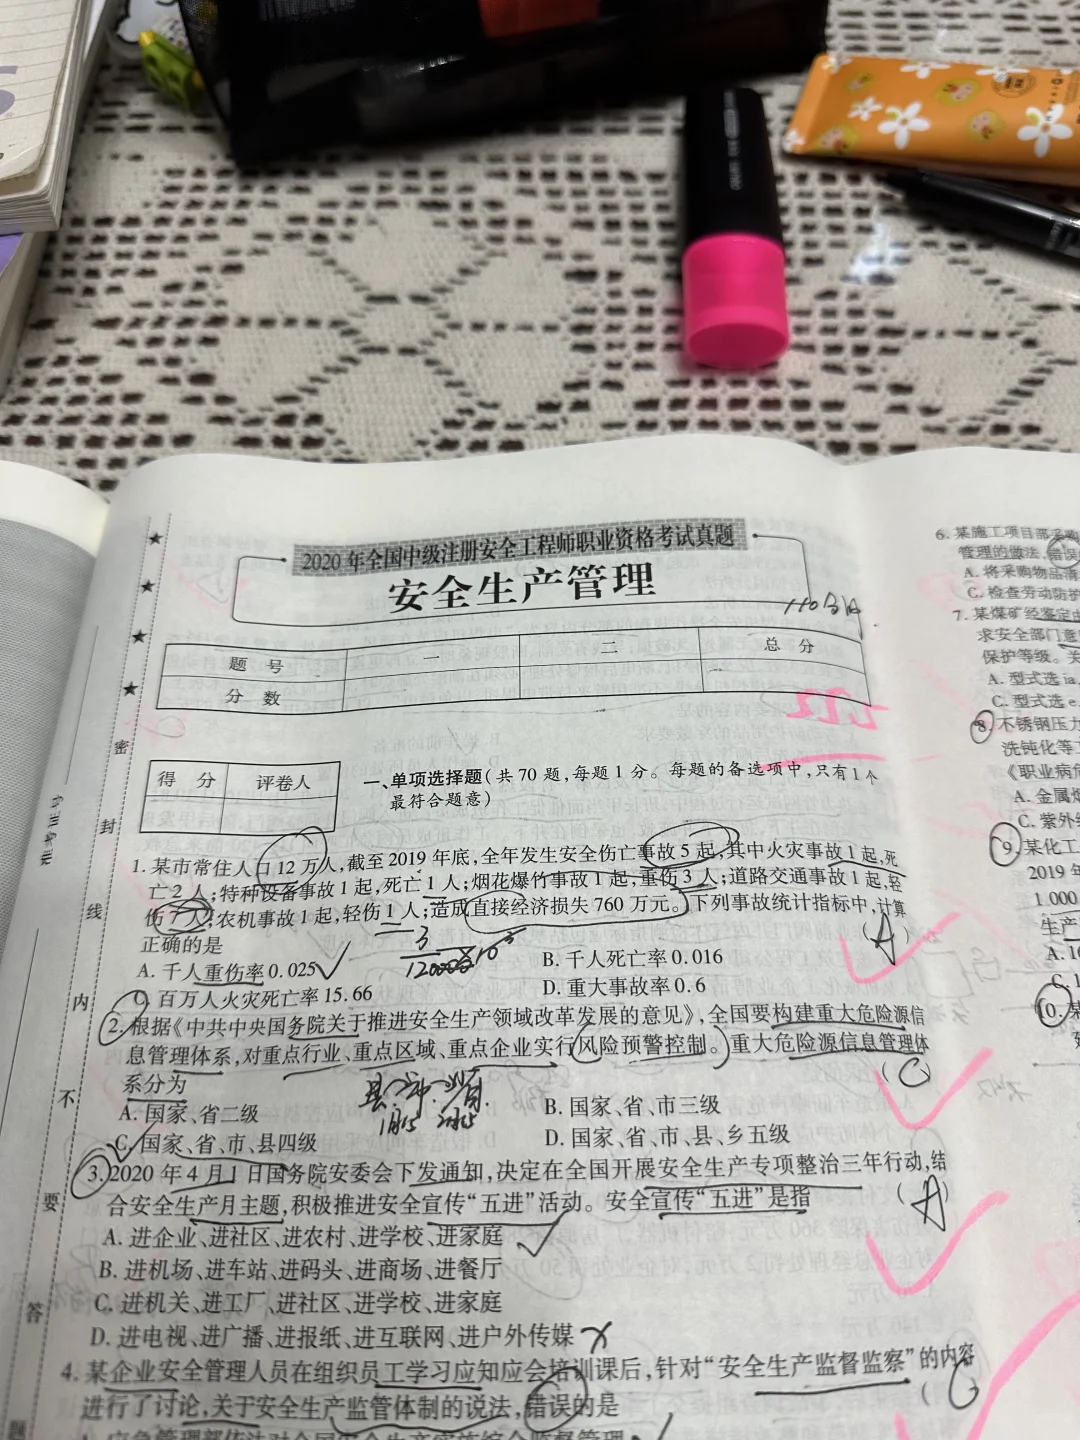 2020年全国中级注册安全工程师职业资格考试真题
安全生产管理
110分
题 号
一
二
总 分
分 数
得 分
评卷人
一、单项选择题(共70题,每题1分。每题的备选项中,只有1个
最符合题意)
1. 某市常住人口12万人,截至2019年底,全年发生安全伤亡事故5起,其中火灾事故1起,死
亡2人;特种设备事故1起,死亡1人;烟花爆竹事故1起,重伤3人;道路交通事故1起,轻
伤7人;农机事故1起,轻伤1人;造成直接经济损失760万元。下列事故统计指标中,计算
正确的是
(A)
A. 千人重伤率0.025
B. 千人死亡率0.016
C. 百万人火灾死亡率15.66
D. 重大事故率0.6
2. 根据《中共中央国务院关于推进安全生产领域改革发展的意见》,全国要构建重大危险源信
息管理体系,对重点行业、重点区域、重点企业实行风险预警控制。重大危险源信息管理体
系分为
(C)
县、市、省
A. 国家、省二级
B. 国家、省、市三级
C. 国家、省、市、县四级
D. 国家、省、市、县、乡五级
3. 2020年4月1日国务院安委会下发通知,决定在全国开展安全生产专项整治三年行动,结
合安全生产月主题,积极推进安全宣传“五进”活动。安全宣传“五进”是指
(A)
A. 进企业、进社区、进农村、进学校、进家庭
B. 进机场、进车站、进码头、进商场、进餐厅
C. 进机关、进工厂、进社区、进学校、进家庭
D. 进电视、进广播、进报纸、进互联网、进户外传媒
4. 某企业安全管理人员在组织员工学习应知应会培训课后,针对“安全生产监督监察”的内容
进行了讨论,关于安全生产监管体制的说法,错误的是
(C
密
封
线
内
不
要
答
题
6. 某施工项目部采购
管理的做法,错误
A. 将采购物品清
C. 检查劳动防护
7. 某煤矿经鉴定由
求安全部门意
保护等级。关
A. 型式选ia、
C. 型式选e、
8. 不锈钢压力
洗钝化等工
《职业病危
A. 金属烟
C. 紫外线
9. 某化工
2019年
1 000
生产
10. 某